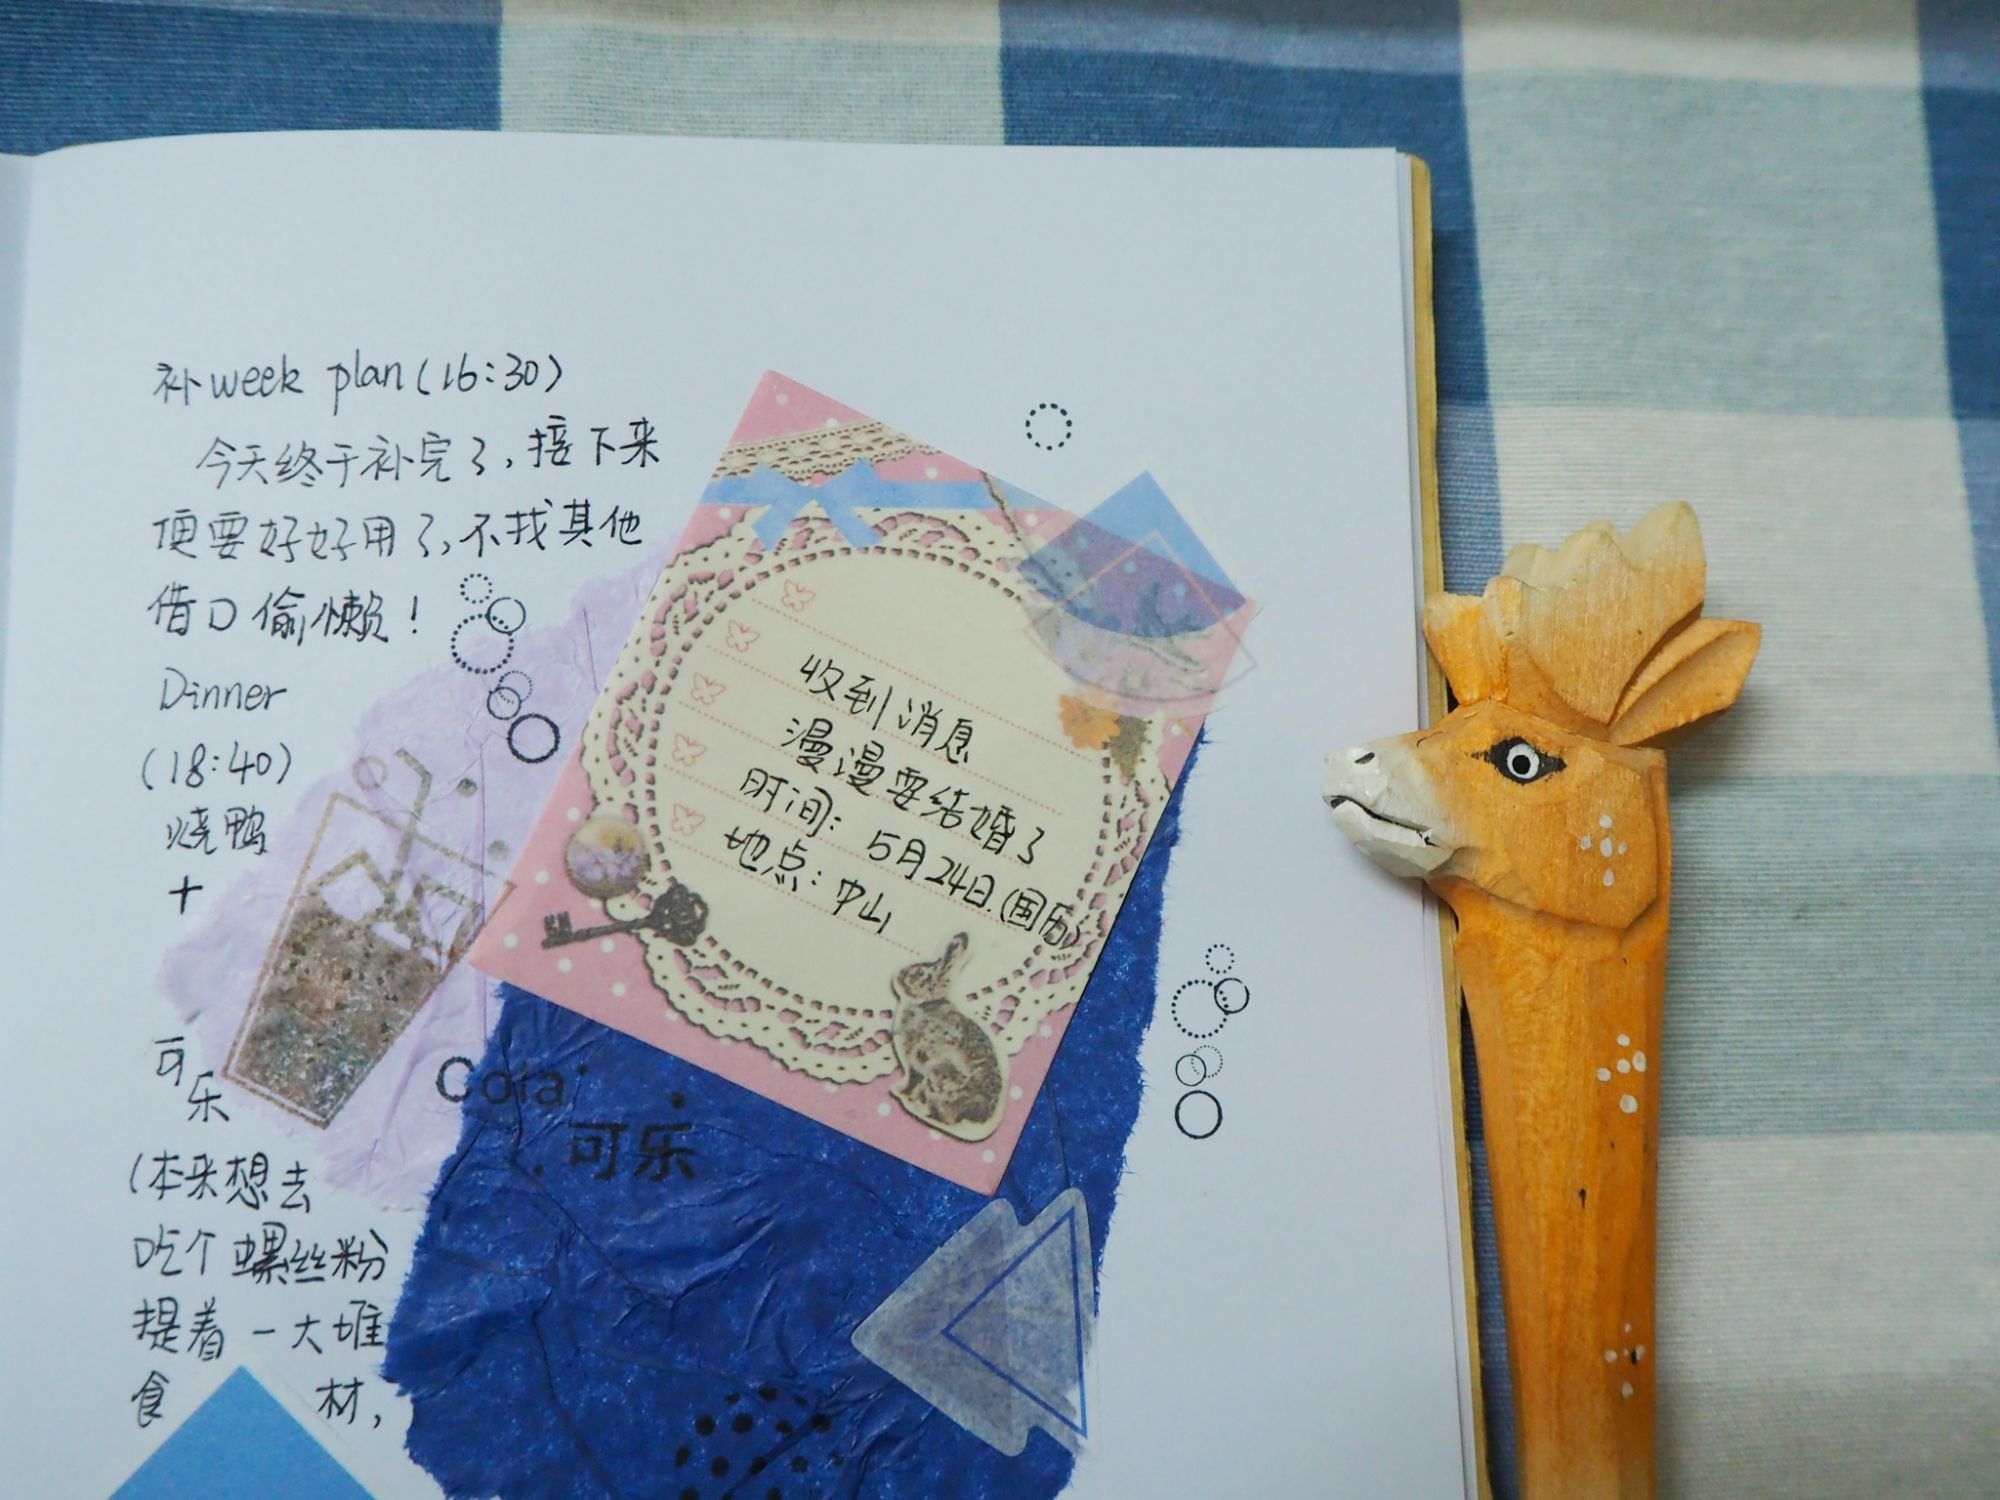 补week plan(16:30)
今天终于补完了,接下来
便要好好用了,不找其他
借口偷懒!
Dinner
(18:40)
烧鸭
+
可
乐
(本来想去
吃个螺丝粉
提着一大堆
食材,
收到消息
漫漫要结婚了
时间:5月24日.(国历)
地点:中山
Cola
可乐